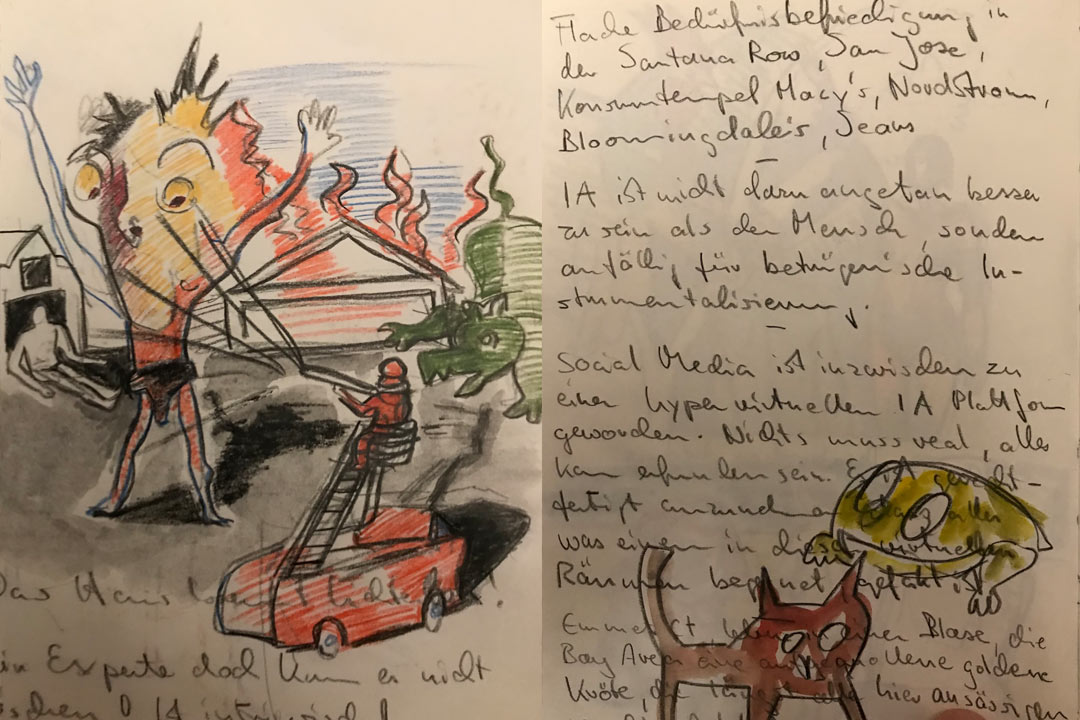 Das Haus brennt lichterloh!
ein Experte doch kann er nicht
löschen! IA intrinsisch!
Flache Bedürfnisbefriedigung in
der Santana Row, San Jose,
Konsumtempel Macy's, Nordstrom,
Bloomingdale's, Jeans
—
IA ist nicht darn angetan besser
zu sein als der Mensch, sondern
anfällig für betrügerische In-
strumentalisierung.
—
Social Media ist inzwischen zu
einer hypervirtuellen IA Plattform
geworden. Nichts muss real, alles
kann erfunden sein. Es ist gerecht-
fertigt anzunehmen, dass alles
was einem in diesen virtuellen
Räumen begegnet gefakt ist
Emme lebt in einer Blase, die
Bay Area eine aufgequollene goldene
Kröte, die längst alle hier ansässigen